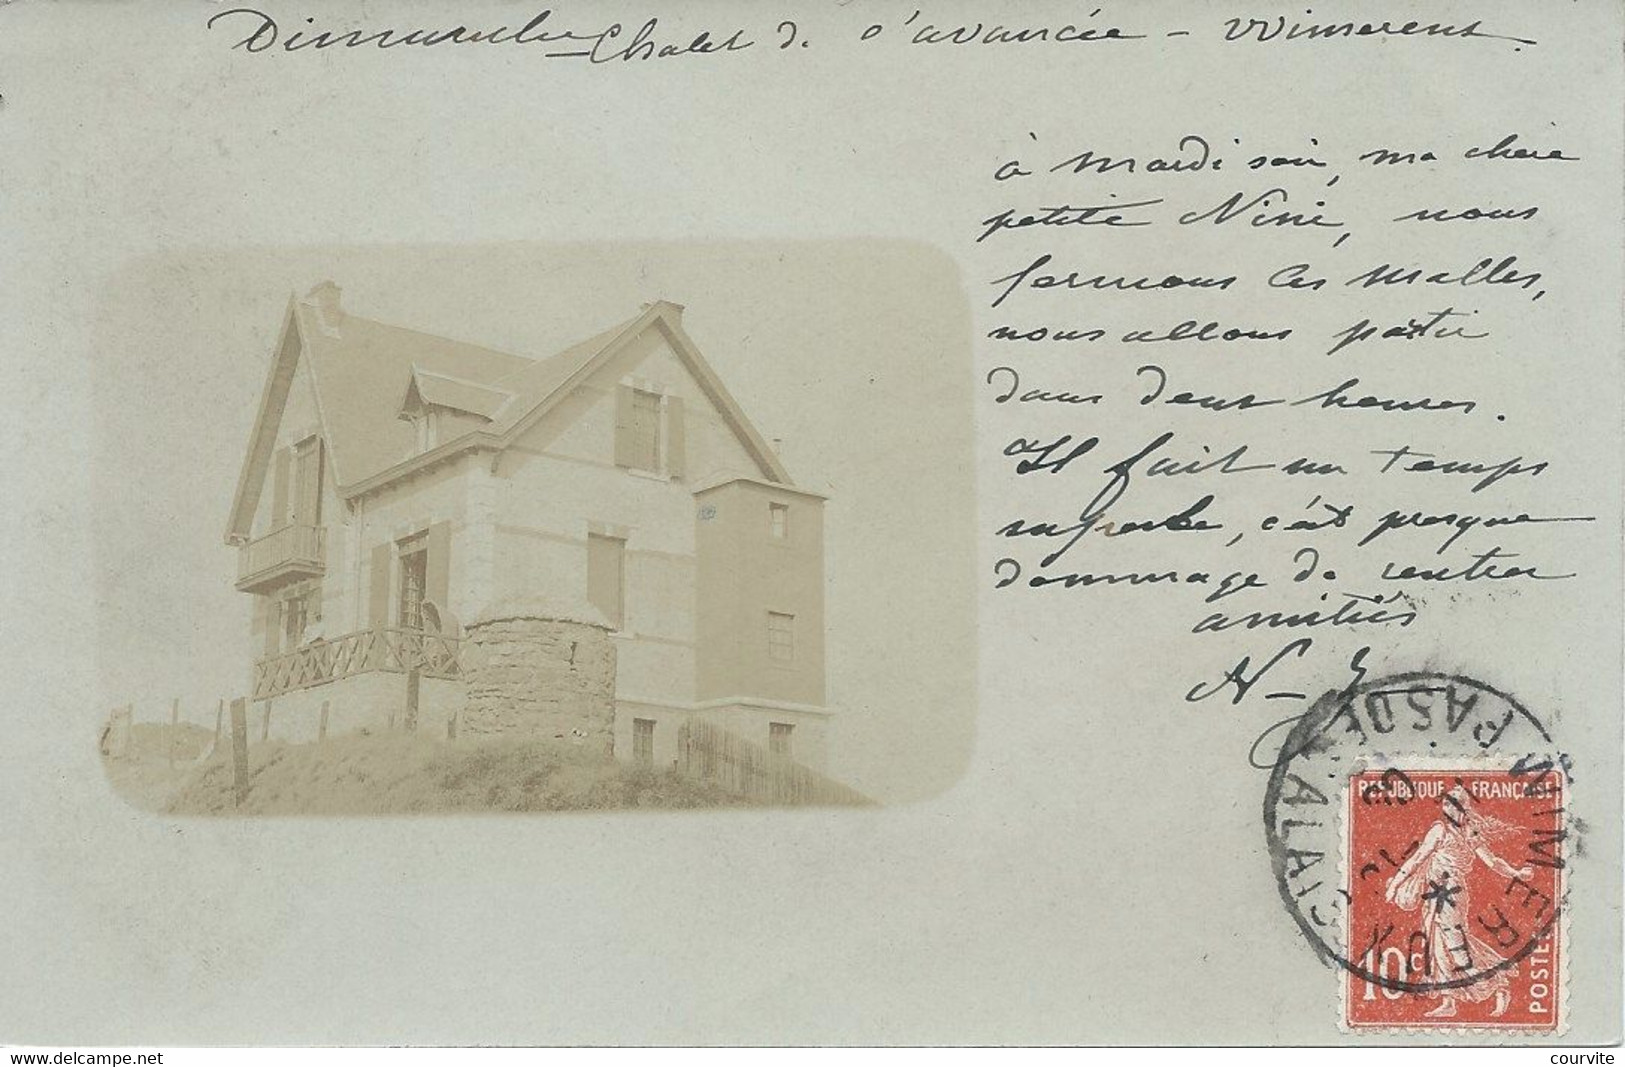 Dimanche – Chalet de l'avancée – Wimereux.
à mardi soir, ma chère
petite Nini, nous
fermons les malles,
nous allons partir
dans deux heures.
Il fait un temps
superbe, c'est presque
dommage de rentrer
amitiés
WIMEREUX
PAS DE CALAIS
REPUBLIQUE FRANÇAISE
10c
POSTES
www.delcampe.net
courvite